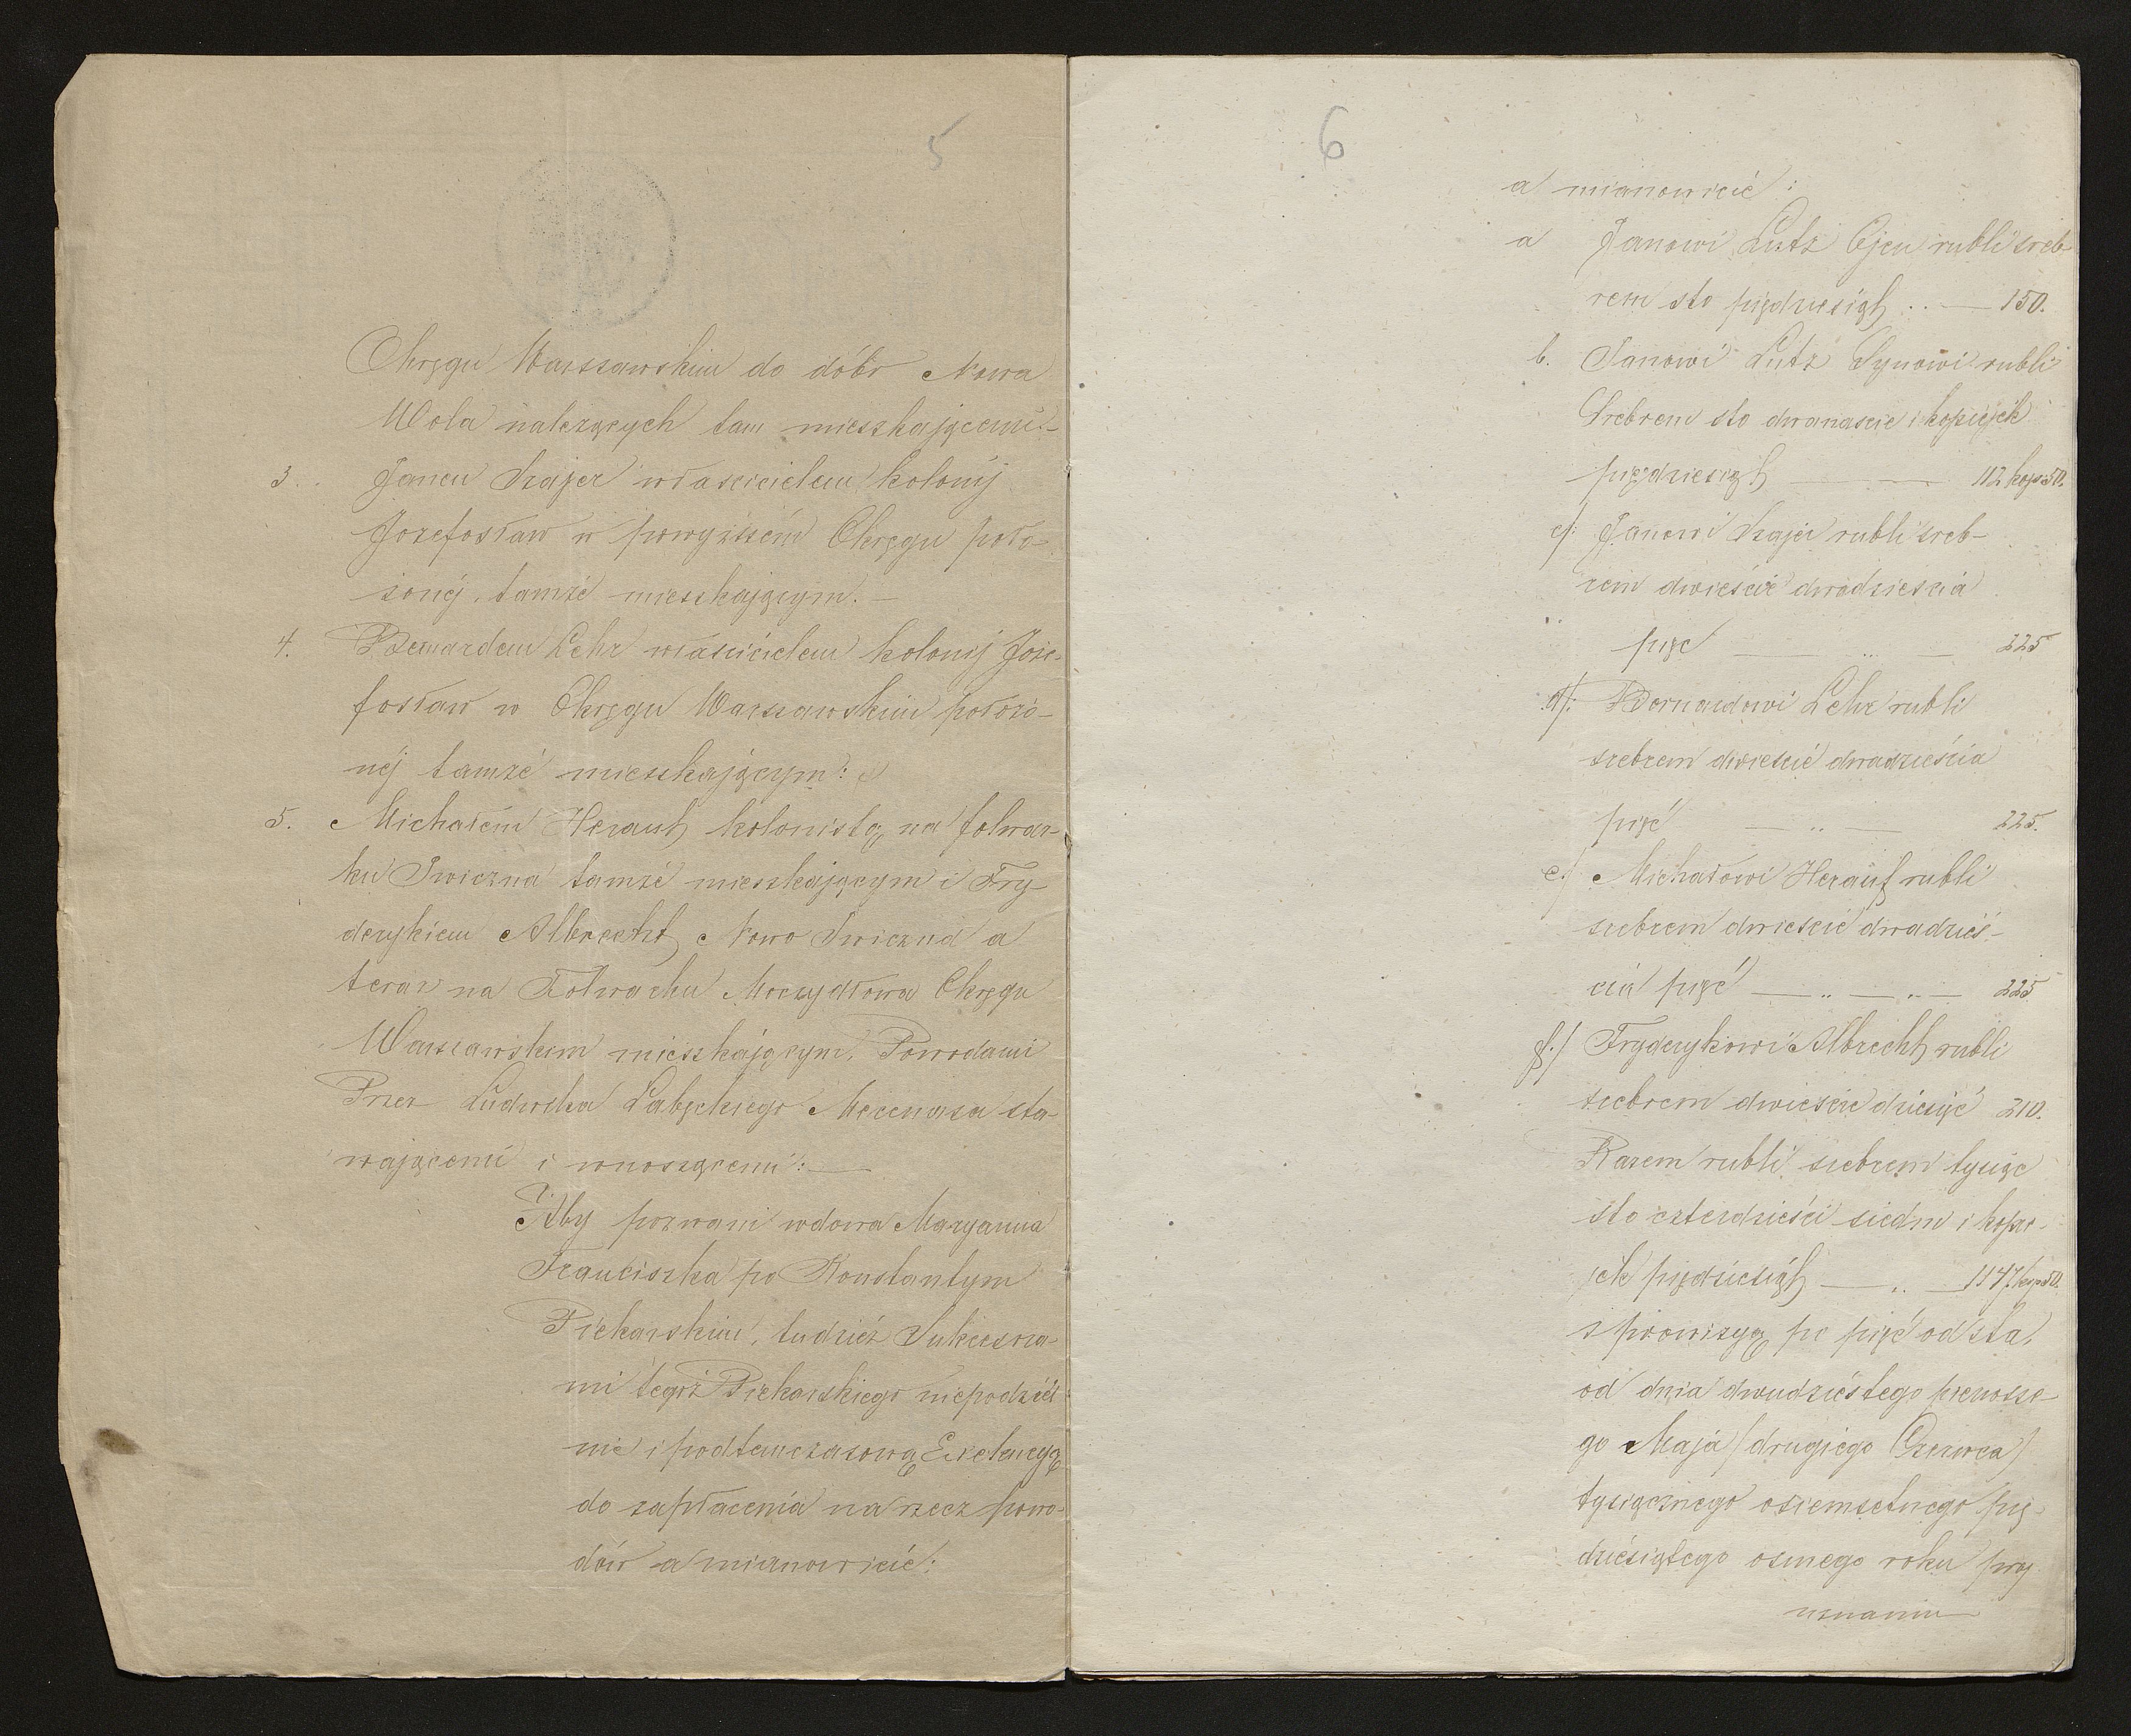 5
Okręgu Warszawskim do dóbr Nowa
Wola należących tam mieszkającemi.-
3. Janem Szajer właścicielem kolonij
Jozefosław w powyższém Okręgu poło-
żonéj, tamże mieszkającym. —
4. Bernardem Lehr właścicielem kolonij Joze-
fosław w Okręgu Warszawskim położo-
néj tamże mieszkającym:
5. Michałem Herauf kolonistą na folwar-
ku Iwiczna tamże mieszkającym i Fry-
derykiem Albrecht Nowo Iwiczna a
teraz na Folwarku Moczydłowa Okręgu
Warszawskim mieszkającym, Powodami
Przez Ludwika Łabęckiego Mecenasa sta-
wającemi i wnoszącemi: —
Aby pozwani wdowa Maryanna
Franciszka po Konstantym
Piekarskim, tudzież Sukcesora-
mi tegoż Piekarskiego niepodziel
nie i pod tymczasową Exekucyą
do zapłacenia na rzecz powo-
dów a mianowicie:
6
a mianowicie:
a Janowi Lutz Ojcu rubli sreb-
rem sto piędziesiąt .. — 150.
b. Janowi Lutz Synowi rubli
Srebrem sto dwanascie i kopiejek
pięździesiąt — — 112 kop 50.
c/: Janowi Szajer rubli sreb-
rem dwieście dwadzieścia
pięc — .. — 225
d/: Bernardowi Lehr rubli
srebrem dwieście dwadzieścia
pięć — .. — 225.
e/ Michałowi Herauf rubli
srebrem dwieście dwadzieś-
cia pięć — .. — .. — 225
f:/ Fryderykowi Albrecht rubli
srebrem dwieście dziesięć 210.
Razem rubli srebrem tysiąc
sto czterdzieści siedm i kopie-
jek pięćdziesiąt — .. — 1147 kop 50.
z prowizyą po pięć od sta,
od dnia dwudziestego pierwsze-
go Maja /drugiego Czerwca/
tysiącznego osiemsetnego pię-
dziesiątego osmego roku przy
uznaniu